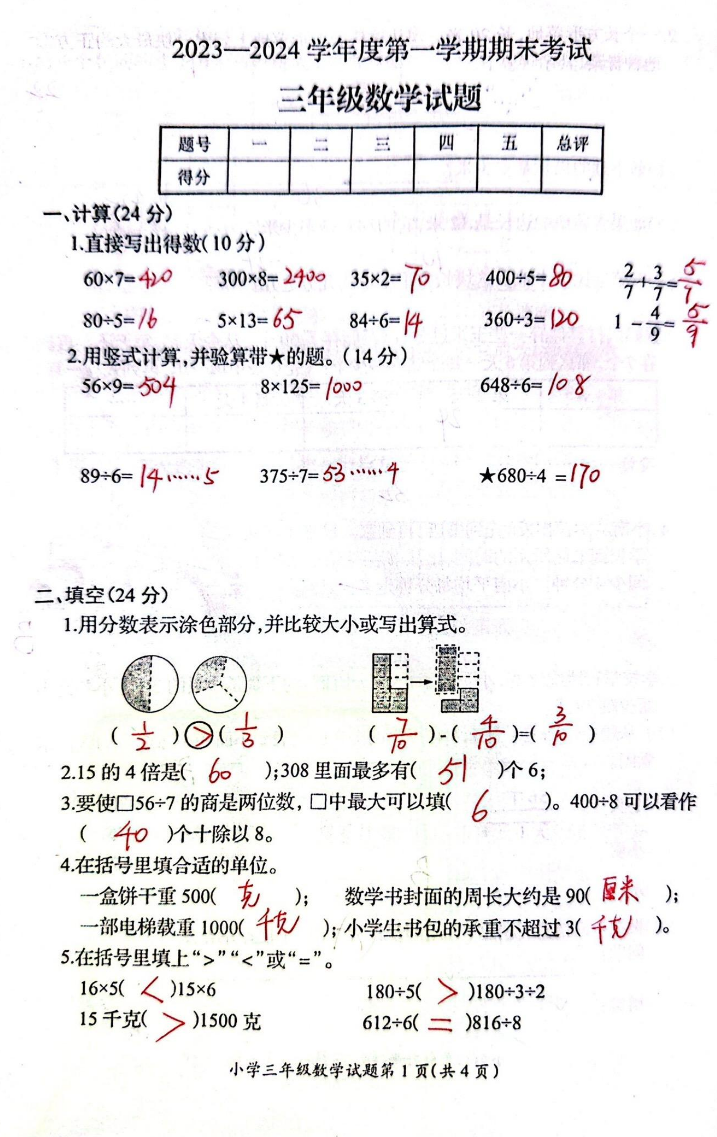 2023—2024学年度第一学期期末考试
三年级数学试题
题号 一 二 三 四 五 总评
得分
一、计算(24分)
1.直接写出得数(10分)
60×7=420 300×8=2400 35×2=70 400÷5=80 2/7+3/7=5/7
80÷5=16 5×13=65 84÷6=14 360÷3=120 1-4/9=5/9
2.用竖式计算,并验算带★的题。(14分)
56×9=504 8×125=1000 648÷6=108
89÷6=14……5 375÷7=53……4 ★680÷4=170
二、填空(24分)
1.用分数表示涂色部分,并比较大小或写出算式。
(1/2)>(1/3) (7/10)-(4/10)=(3/10)
2.15的4倍是(60);308里面最多有(51)个6;
3.要使□56÷7的商是两位数,□中最大可以填(6)。400÷8可以看作
(40)个十除以8。
4.在括号里填合适的单位。
一盒饼干重500(克); 数学书封面的周长大约是90(厘米);
一部电梯载重1000(千克);小学生书包的承重不超过3(千克)。
5.在括号里填上“>”“<”或“=”。
16×5(<)15×6 180÷5(>)180÷3÷2
15千克(>)1500克 612÷6(=)816÷8
小学三年级数学试题第1页(共4页)